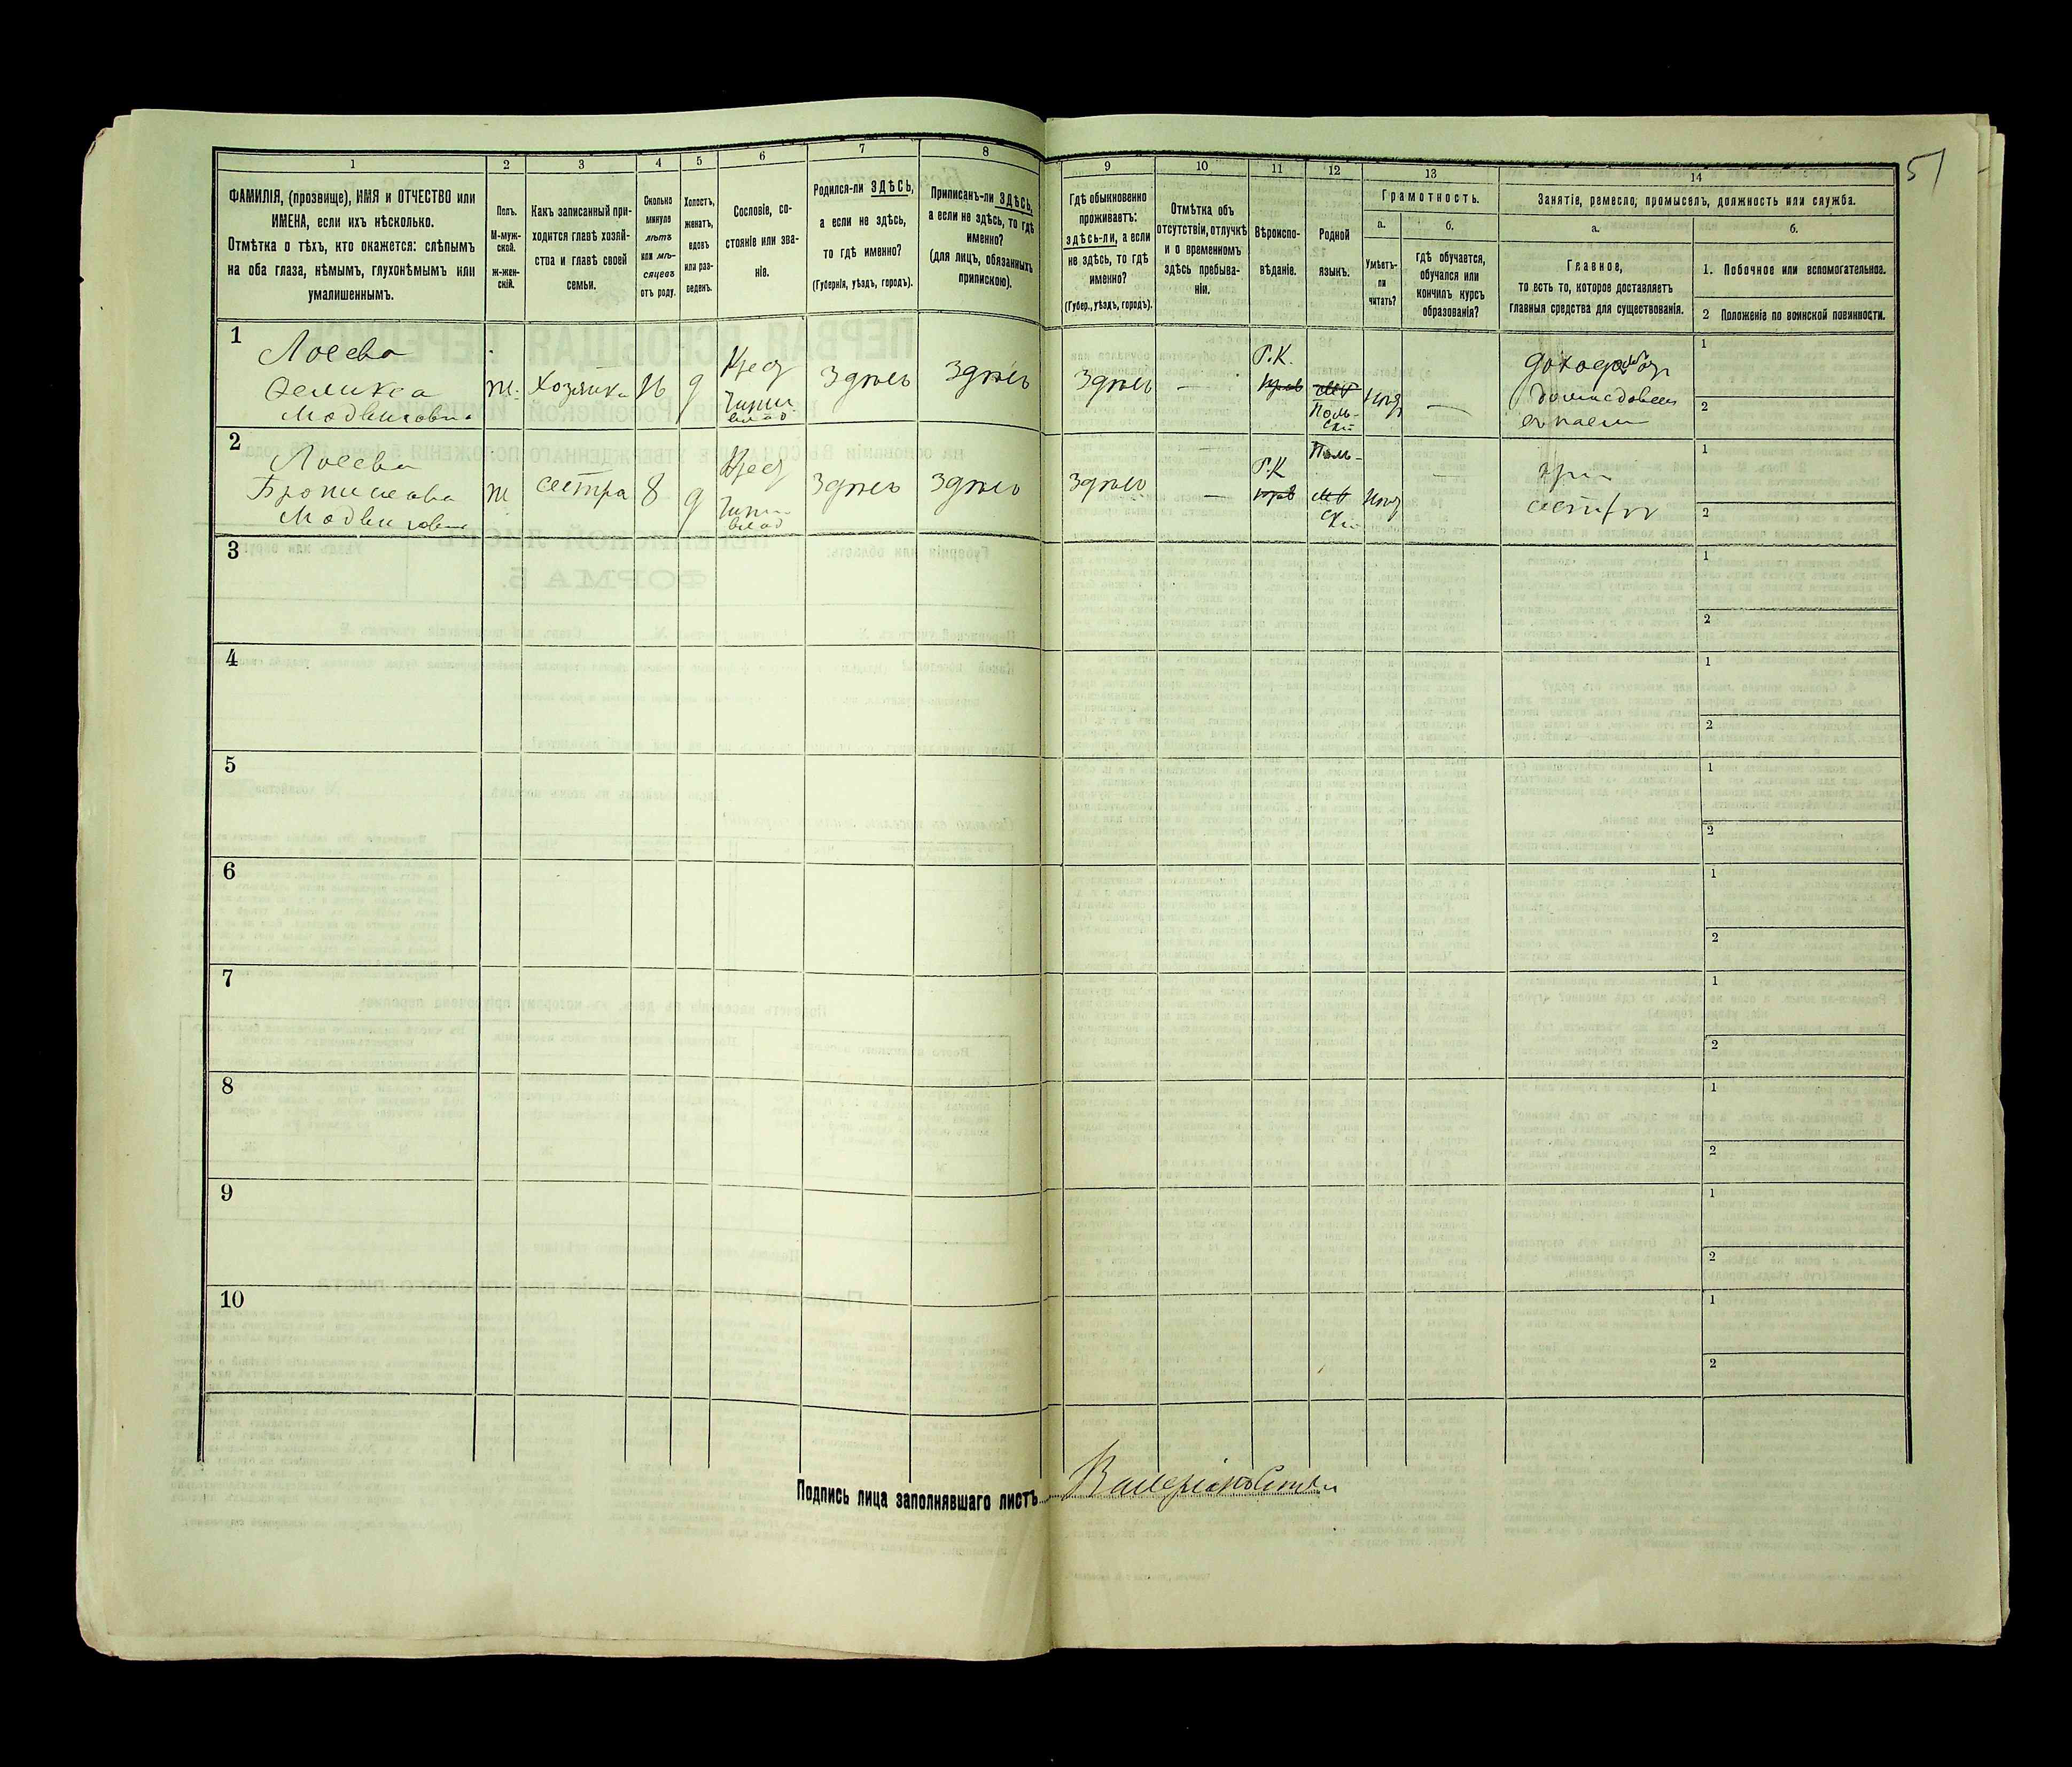 51
1
ФАМИЛІЯ, (прозвище), ИМЯ и ОТЧЕСТВО или
ИМЕНА, если ихъ нѣсколько.
Отмѣтка о тѣхъ, кто окажется: слѣпымъ
на оба глаза, нѣмымъ, глухонѣмымъ или
умалишеннымъ.
2
Полъ.
М-муж-
ской.
ж-жен-
скій.
3
Какъ записанный при-
ходится главѣ хозяй-
ства и главѣ своей
семьи.
4
Сколько
минуло
лѣтъ
или мѣ-
сяцевъ
отъ роду.
5
Холостъ,
женатъ,
вдовъ
или раз-
веденъ.
6
Сословіе, со-
стояніе или зва-
ніе.
7
Родился-ли ЗДѢСЬ,
а если не здѣсь,
то гдѣ именно?
(Губернія, уѣздъ, городъ).
8
Приписанъ-ли ЗДѢСЬ,
а если не здѣсь, то гдѣ
именно?
(для лицъ, обязанныхъ
припискою).
9
Гдѣ обыкновенно
проживаетъ:
здѣсь-ли, а если
не здѣсь, то гдѣ
именно?
(Губер., уѣздъ, городъ).
10
Отмѣтка объ
отсутствіи, отлучкѣ
и о временномъ
здѣсь пребыва-
ніи.
11
Вѣроиспо-
вѣданіе.
12
Родной
языкъ.
13
Грамотность.
а.
Умѣетъ-
ли
читать?
б.
гдѣ обучается,
обучался или
кончилъ курсъ
образованія?
14
Занятіе, ремесло, промыселъ, должность или служба.
а.
Главное,
то есть то, которое доставляетъ
главныя средства для существованія.
б.
1. Побочное или вспомогательное.
2 Положеніе по воинской повинности.
1
Лосева
ж.
Хозяйка
16
д
здѣсь
здѣсь
здѣсь
—
Р.К.
Поль-
ски
—
1
2
2
Лосева
Бронислава
ж
сестра
8
д
здѣсь
здѣсь
здѣсь
—
Р.К
Поль-
ски
—
при
сестрѣ
1
2
3
1
2
4
1
2
5
1
2
6
1
2
7
1
2
8
1
2
9
1
2
10
1
2
Подпись лица заполнявшаго листъ